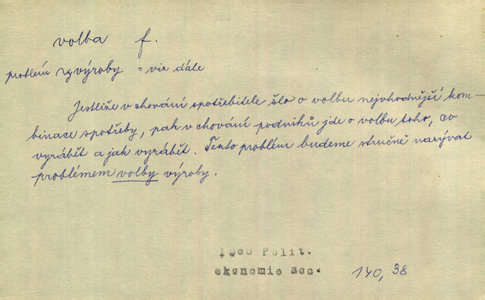 volba f.
problém v. výroby = viz dále
Jestliže v chování spotřebitele šlo o volbu nejvhodnější kom-
binace spotřeby, pak v chování podniků jde o volbu toho, co
vyrábět a jak vyrábět. Tento problém budeme stručně nazývat
problémem volby výroby.
1990 Polit.
ekonomie soc.
140, 38